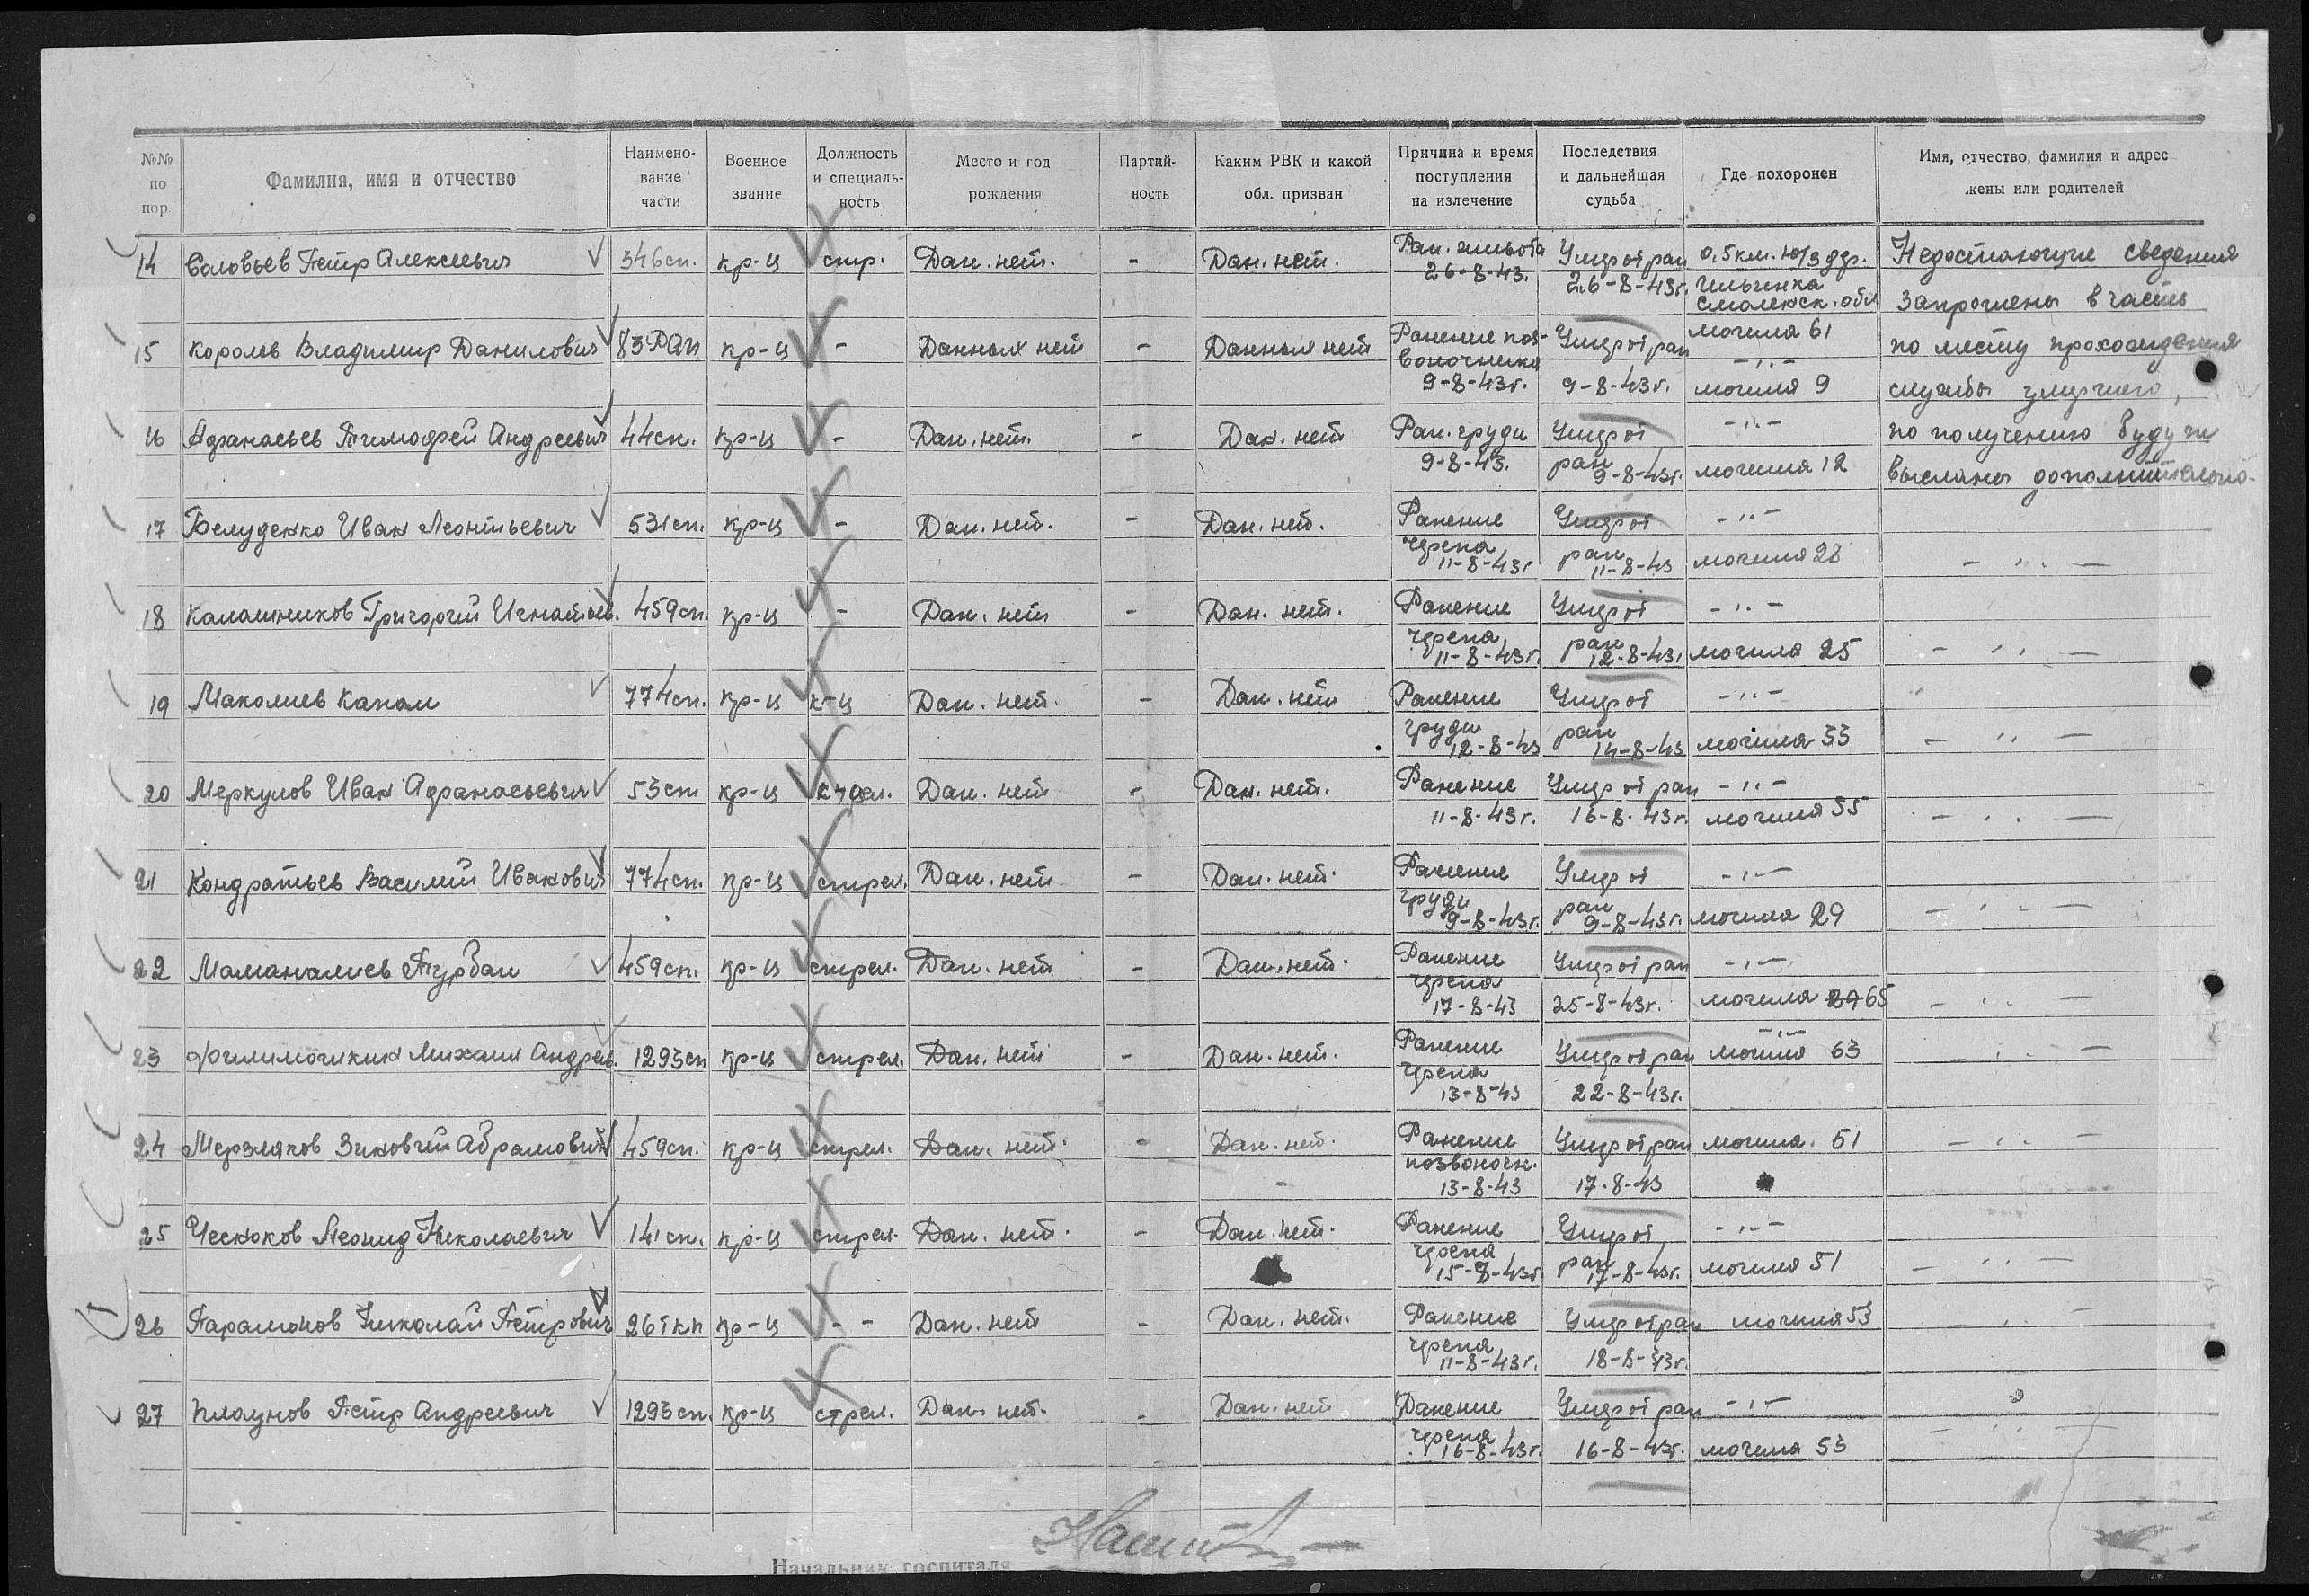 №№ по пор. Фамилия, имя и отчество Наимено-вание части Военное звание Должность и специаль-ность Место и год рождения Партий-ность Каким РВК и какой обл. призван Причина и время поступления на излечение Последствия и дальнейшая судьба Где похоронен Имя, отчество, фамилия и адрес жены или родителей
14 Соловьев Петр Алексеевич 346 сп. кр-ц стр. Дан. нет. - Дан. нет. Ран. живота Умер от ран 0,5 км. ю/з дер. Недостающие сведения
26-8-43. 26-8-43г. Ильинка
Смоленск. обл запрошены в часть
могила 61
15 Король Владимир Данилович 83 РАП кр-ц - Данных нет - Данных нет Ранение поз- Умер от ран -"- по месту прохождения
воночника
9-8-43г. 9-8-43г. могила 9 службы умершего,
16 Афанасьев Тимофей Андреевич 44 сп. кр-ц - Дан. нет. - Дан. нет Ран. груди Умер от -"- по получению будут
9-8-43. ран 9-8-43г. могила 12 высланы дополнительно.
17 Белуденко Иван Леонтьевич 531 сп. кр-ц - Дан. нет. - Дан. нет. Ранение Умер от -"-
черепа 11-8-43г ран 11-8-43 могила 28 - " -
18 Калашников Григорий Игнатьев. 459 сп. кр-ц - Дан. нет - Дан. нет. Ранение Умер от -"-
черепа 11-8-43г. ран 12-8-43г могила 25 - " -
19 Маколиев Капам 774 сп. кр-ц к-ц Дан. нет. - Дан. нет Ранение Умер от -"-
груди 12-8-43 ран 14-8-43 могила 33 - " -
20 Меркулов Иван Афанасьевич 53 сп кр-ц Дан. нет - Дан. нет. Ранение Умер от ран -"-
11-8-43г. 16-8-43г. могила 55 - " -
21 Кондратьев Василий Иванович 774 сп. кр-ц стрел. Дан. нет - Дан. нет. Ранение Умер от -"-
груди 9-8-43г. ран 9-8-43г. могила 29 - " -
22 Маманалиев Турбан 459 сп. кр-ц стрел. Дан. нет - Дан. нет. Ранение Умер от ран -"-
черепа 17-8-43 25-8-43г. могила 29 65 - " -
-"-
23 Филимочикин Михаил Андреев. 1293 сп кр-ц стрел. Дан. нет - Дан. нет. Ранение Умер от ран могила 63 - " -
черепа 13-8-43 22-8-43г.
24 Мерзляков Зиновий Абрамович 459 сп. кр-ц стрел. Дан. нет. - Дан. нет. Ранение Умер от ран могила. 61 - " -
позвоночн. 13-8-43 17-8-43
25 Чесноков Леонид Николаевич 141 сп. кр-ц стрел. Дан. нет. - Дан. нет. Ранение Умер от -"-
черепа 15-8-43г ран 17-8-43г. могила 51 - " -
26 Парамонов Николай Петрович кр-ц - - Дан. нет - Дан. нет. Ранение Умер от ран могила 53 - " -
черепа 11-8-43г. 18-8-43г.
27 Плаунов Петр Андреевич 1293 сп. кр-ц стрел. Дан. нет. - Дан. нет Ранение Умер от ран -"-
черепа 16-8-43г. 16-8-43г. могила 53 - " -
Начальник госпиталя